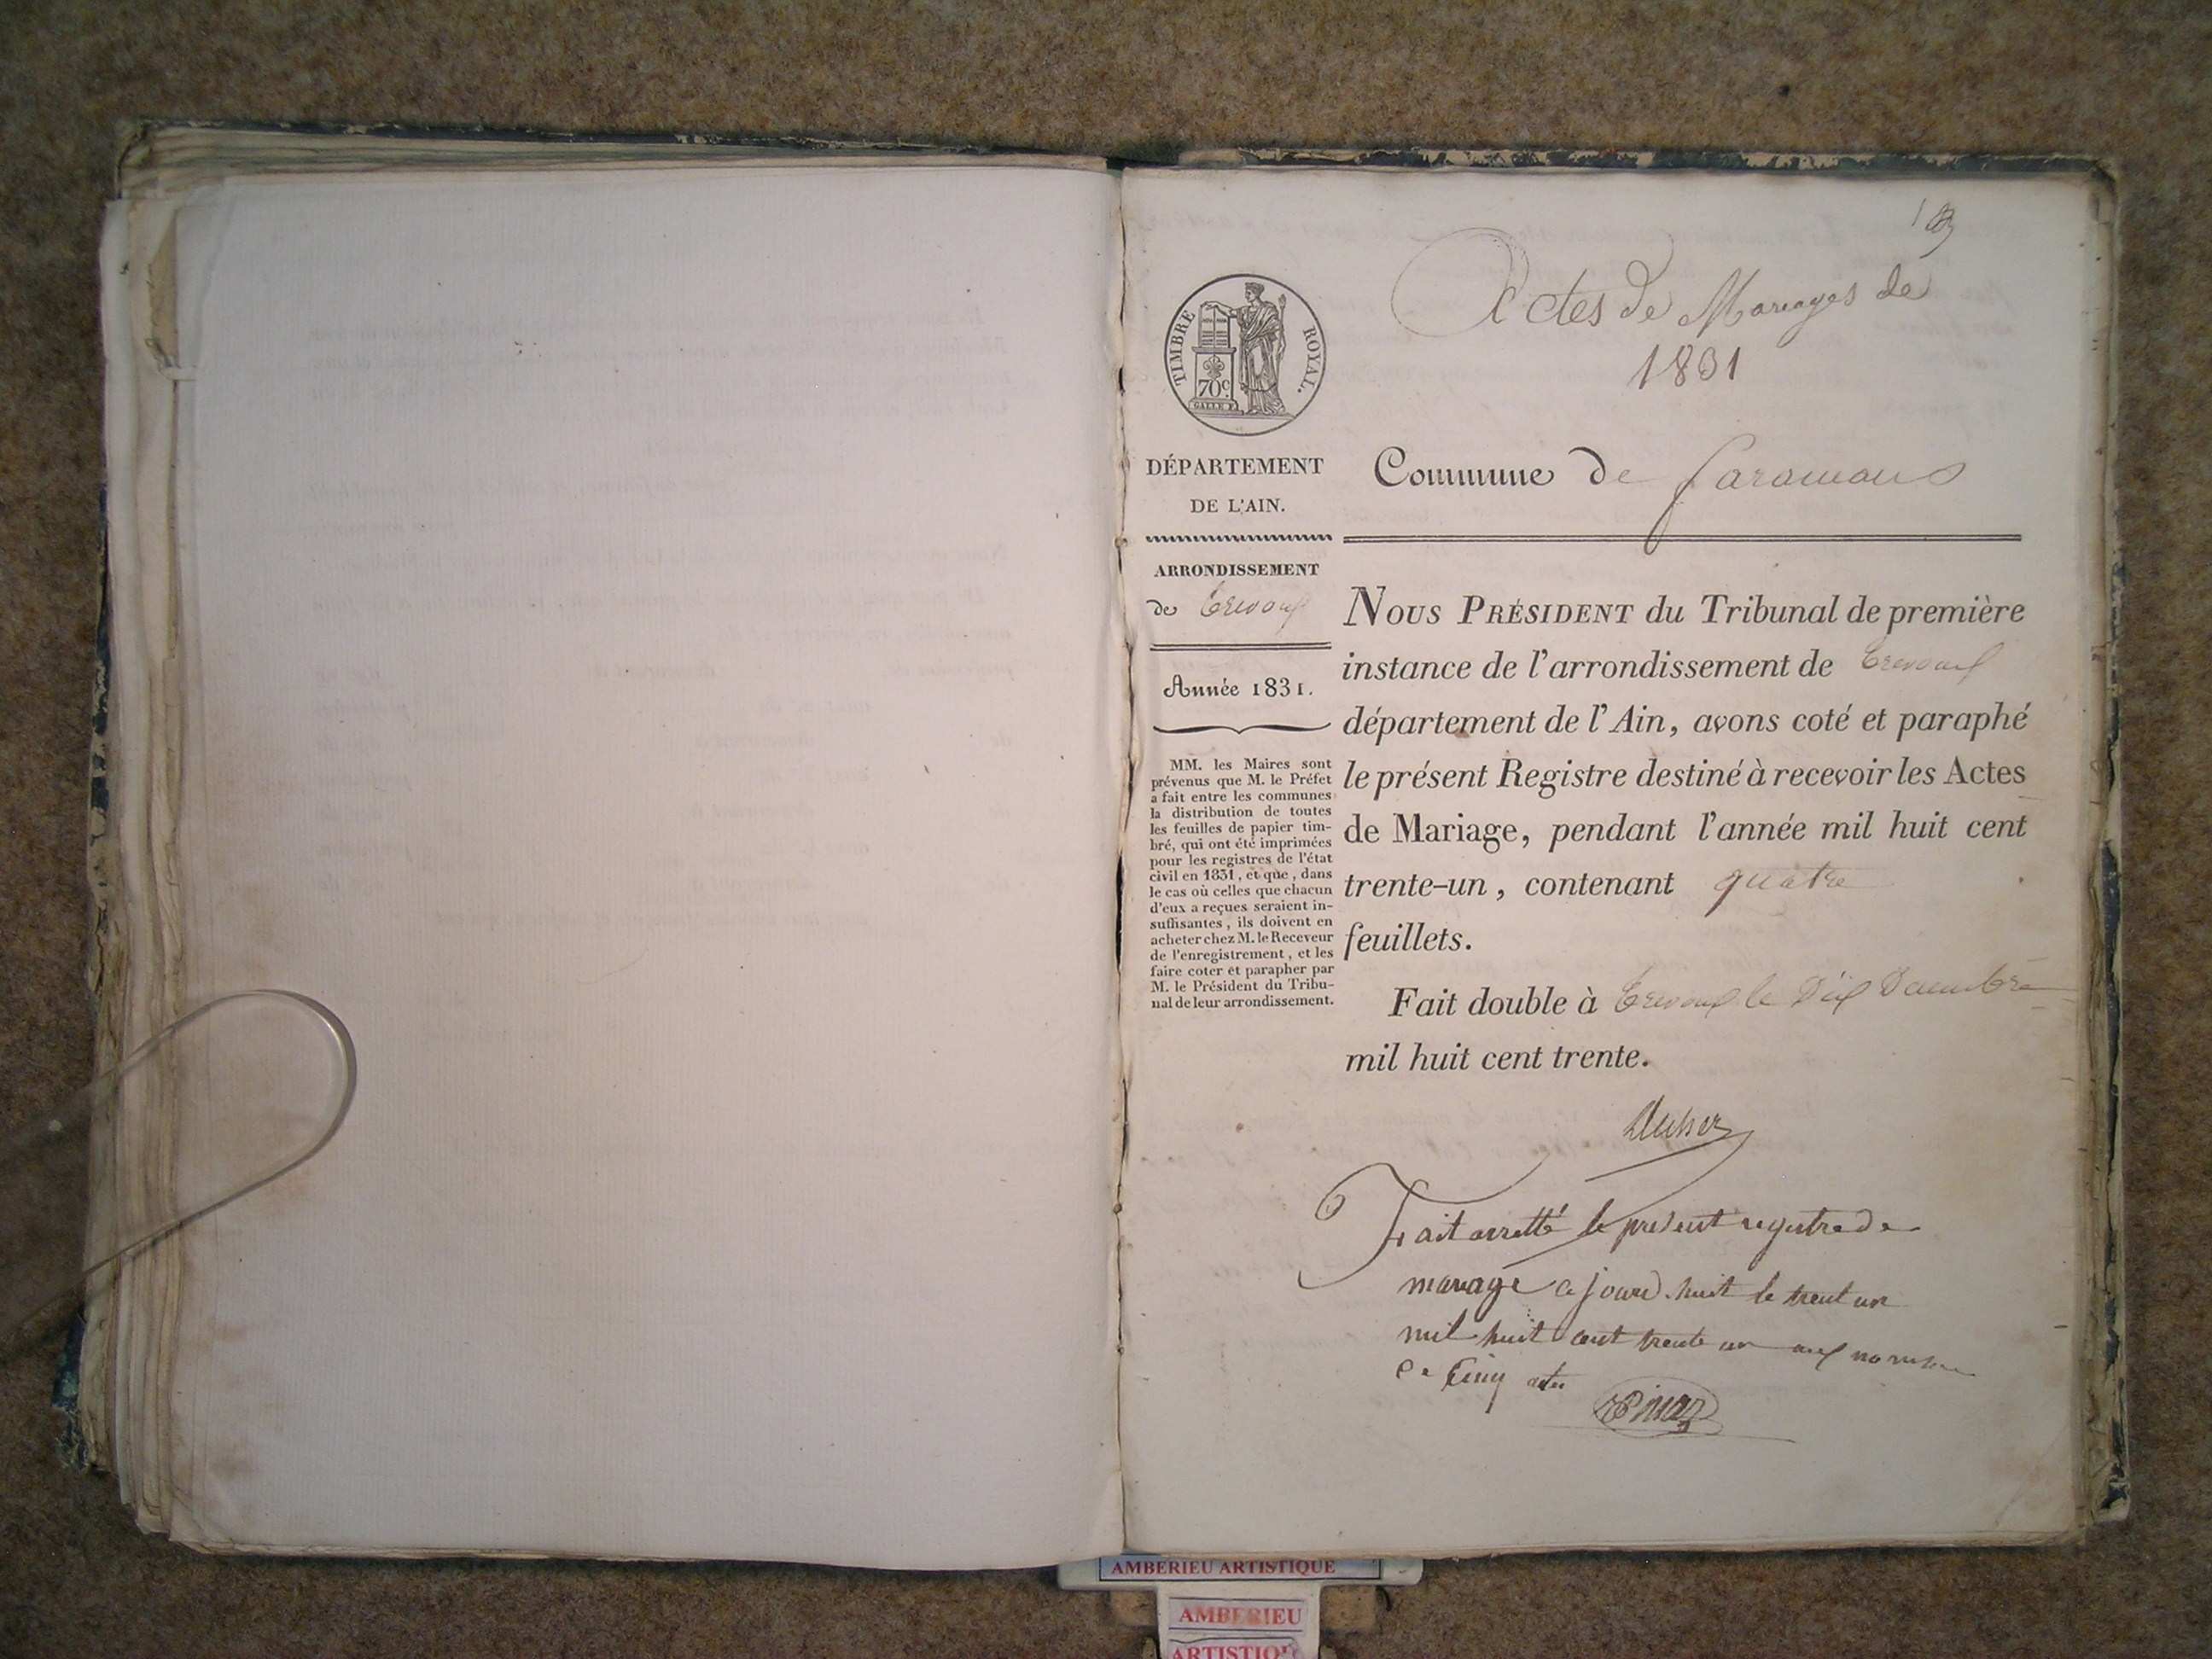 Actes de Mariages de
1831
TIMBRE ROYAL.
70c
GALLE F.
DÉPARTEMENT
DE L'AIN.
Commune de faramans
ARRONDISSEMENT
de Trevoux
Année 1831.
MM. les Maires sont
prévenus que M. le Préfet
a fait entre les communes
la distribution de toutes
les feuilles de papier tim-
bré, qui ont été imprimées
pour les registres de l'état
civil en 1831, et que, dans
le cas où celles que chacun
d'eux a reçues seraient in-
suffisantes, ils doivent en
acheter chez M. le Receveur
de l'enregistrement, et les
faire coter et parapher par
M. le Président du Tribu-
nal de leur arrondissement.
NOUS PRÉSIDENT du Tribunal de première
instance de l'arrondissement de Trevoux
département de l'Ain, avons coté et paraphé
le présent Registre destiné à recevoir les Actes
de Mariage, pendant l'année mil huit cent
trente-un, contenant quatre
feuillets.
Fait double à Trevoux le Dix Decembre
mil huit cent trente.
Fait arretté le present registre de
mariage a jourd.huit le trent un
mil huit cent trente un aux nombre
De Cinq actes
AMBERIEU ARTISTIQUE
AMBERIEU
ARTISTIQUE